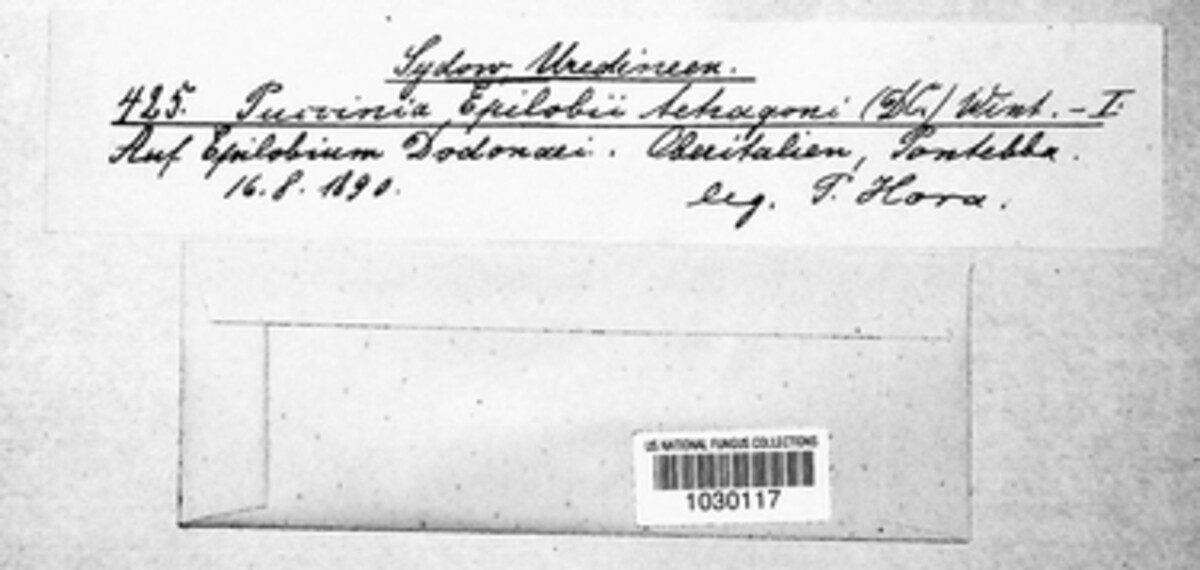 Sydow, Uredineen.
425. Puccinia Epilobii tetragoni (DC.) Wint. – I.
Auf Epilobium Dodonaei. Oberitalien, Pontebba.
16. 8. 1890. leg. P. Hora.
US NATIONAL FUNGUS COLLECTIONS
1030117